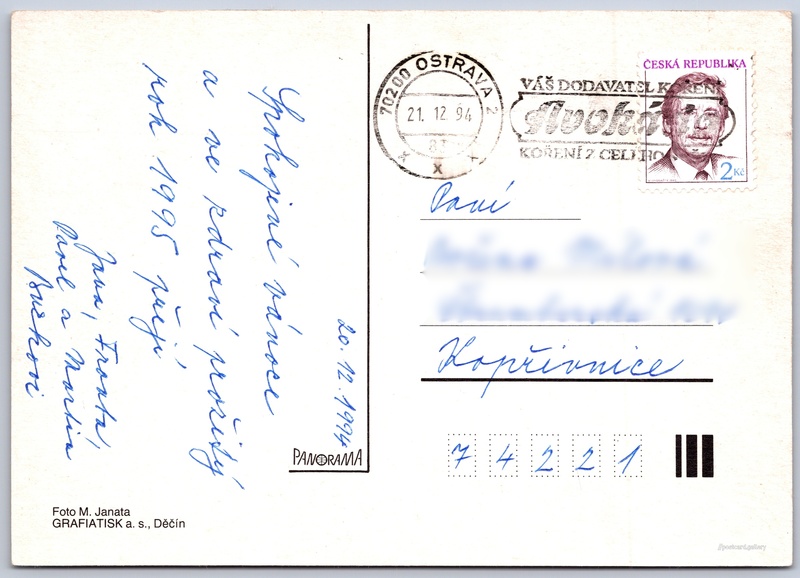 Spokojené vánoce
a ve zdraví prožitý
rok 1995 přejí
Jana, Franta,
Pavel a Martin
Buchovi
20. 12. 1994
PANORAMA
Foto M. Janata
GRAFIATISK a. s., Děčín
70200 OSTRAVA 2
21. 12. 94
VÁŠ DODAVATEL KOŘENÍ
KOŘENÍ Z CELÉHO
ČESKÁ REPUBLIKA
2 Kč
Paní
Kopřivnice
74221
postcard.gallery